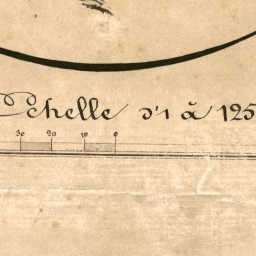 Echelle d'1 à 125
30 20 10 0